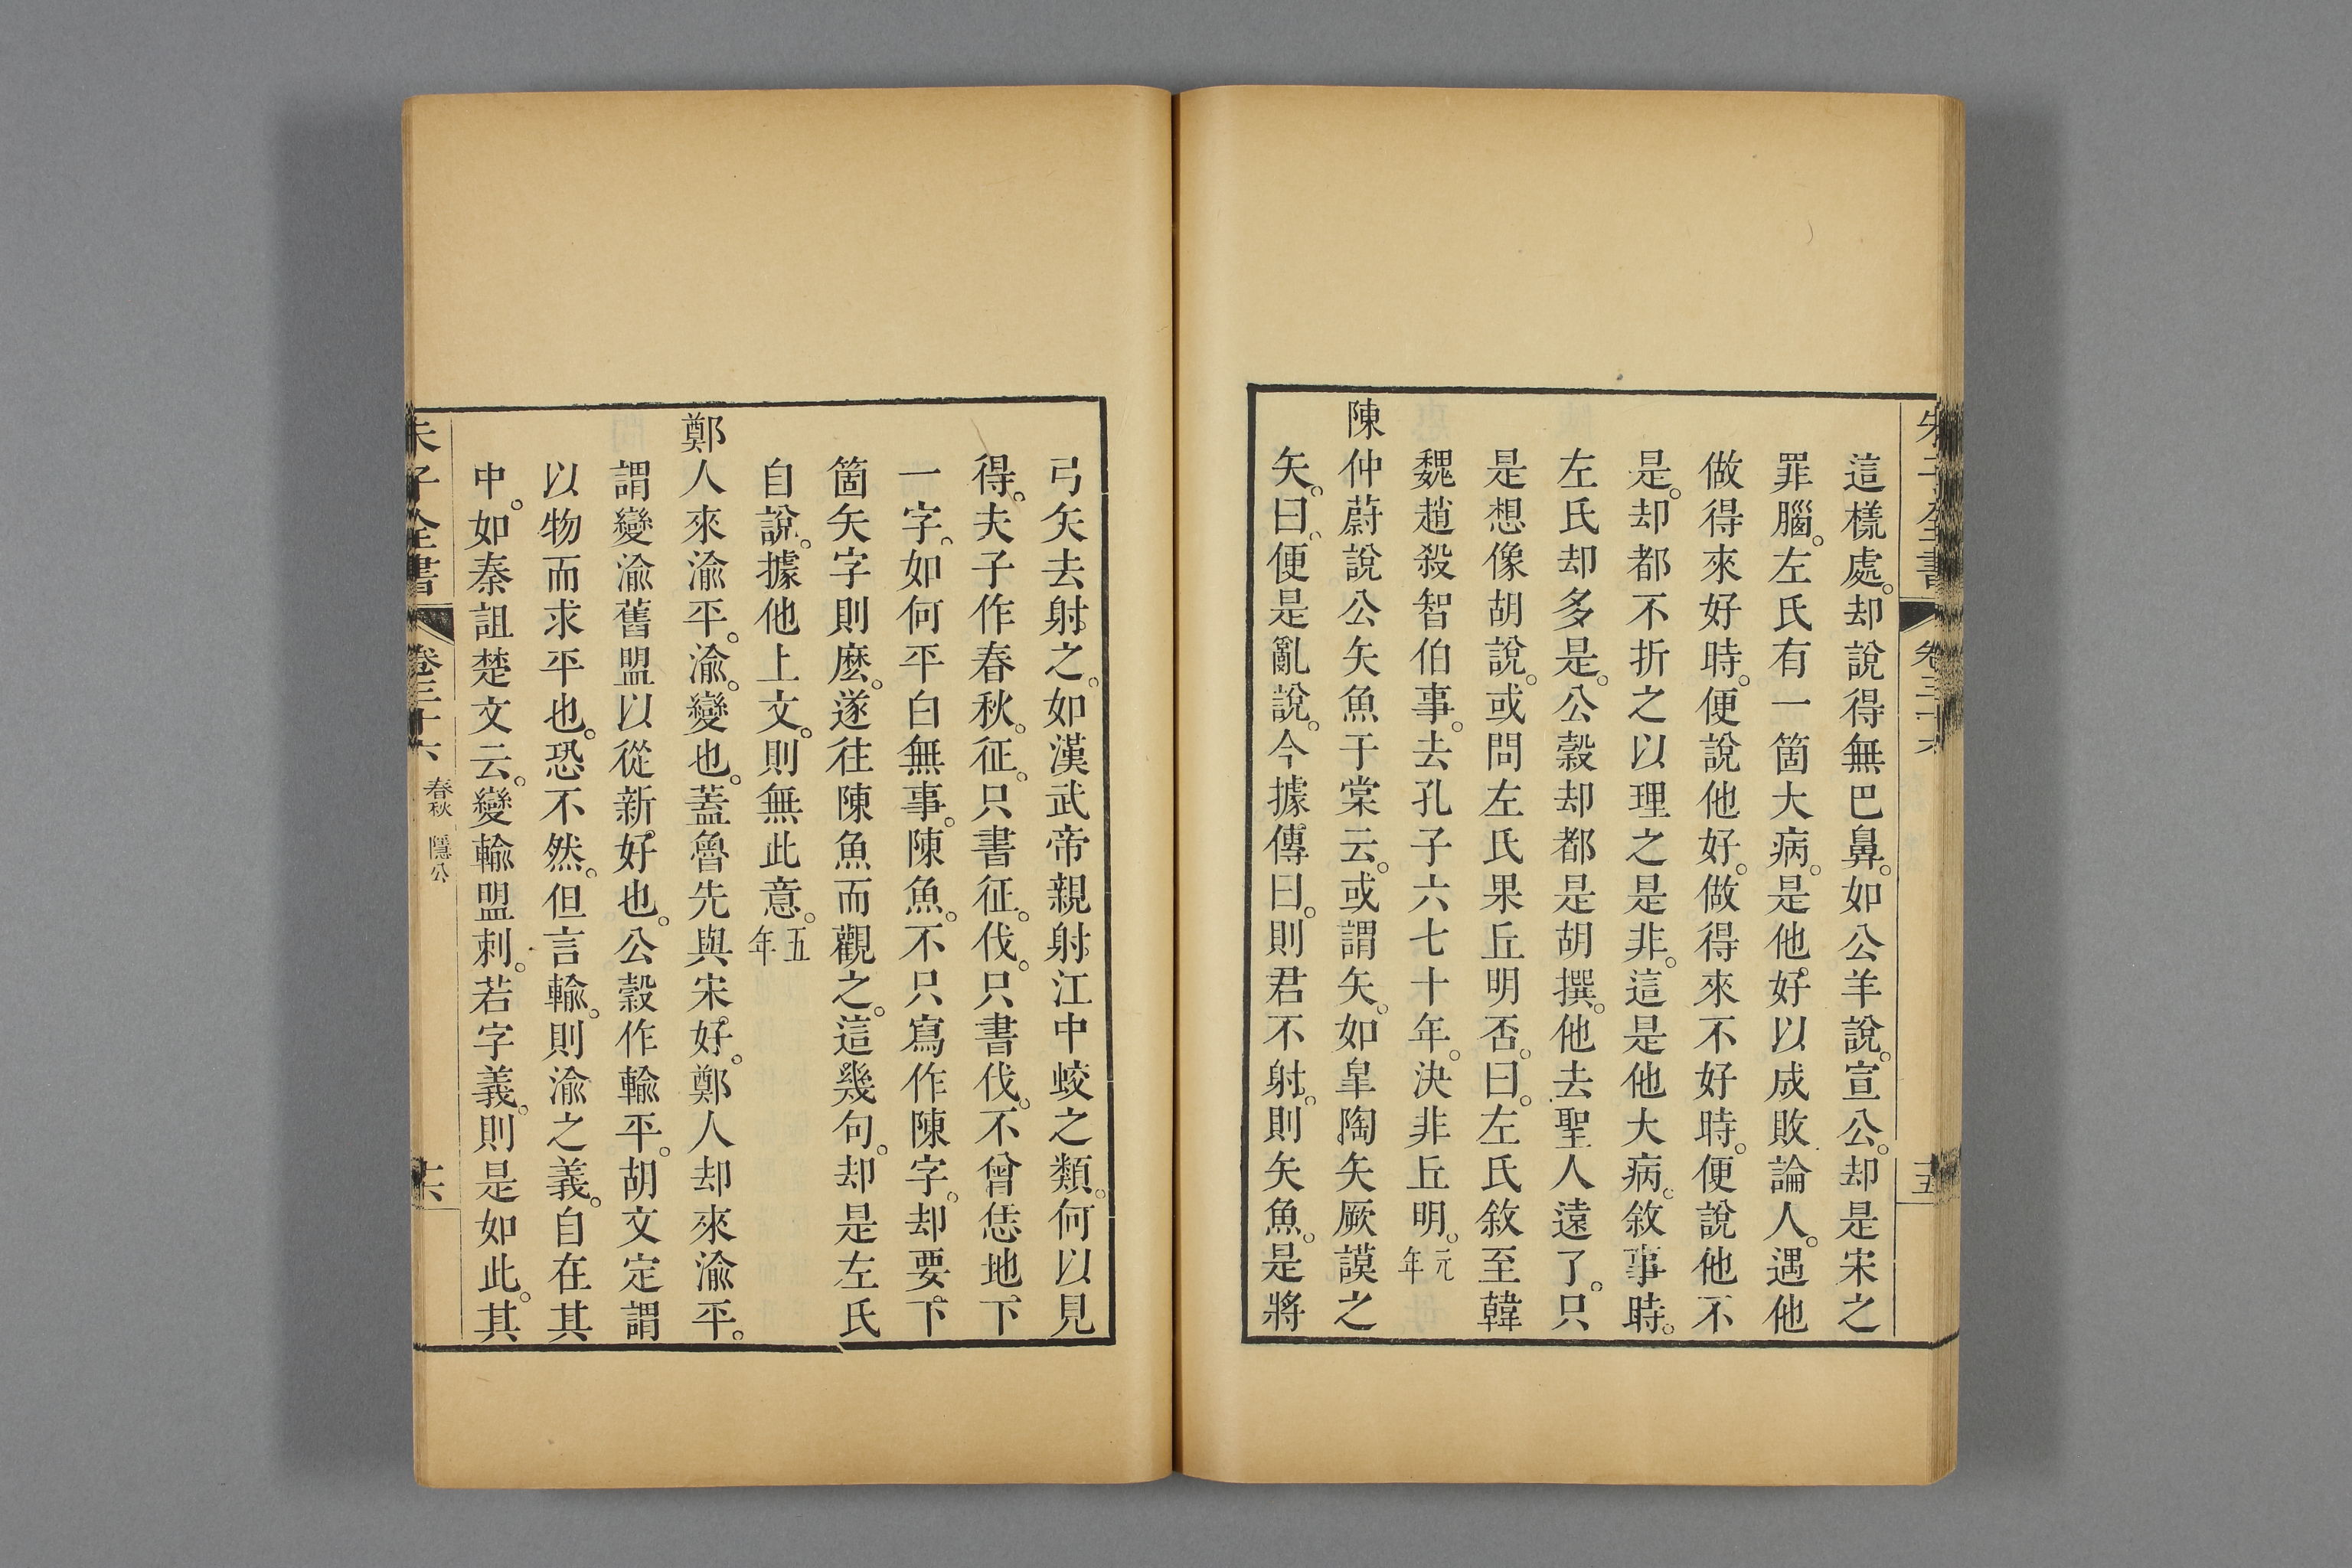 朱子全書 卷三十六 十五
這樣處。却說得無巴鼻。如公羊說。宣公。却是宋之
罪腦。左氏有一箇大病。是他好以成敗論人。遇他
做得來好時。便說他好。做得來不好時。便說他不
是。却都不折之以理之是非。這是他大病。敘事時。
左氏却多是。公穀却都是胡撰。他去聖人遠了。只
是想像胡說。或問左氏果丘明否。曰。左氏敘至韓
魏趙殺智伯事。去孔子六七十年。決非丘明。元年
陳仲蔚說公矢魚于棠云。或謂矢。如臯陶矢厥謨之
矢。曰。便是亂說。今據傳曰。則君不射。則矢魚。是將
弓矢去射之。如漢武帝親射江中蛟之類。何以見
得。夫子作春秋。征。只書征。伐。只書伐。不曾恁地下
一字。如何平白無事。陳魚。不只寫作陳字。却要下
箇矢字則麽。遂往陳魚而觀之。這幾句。却是左氏
自說。據他上文。則無此意。五年
鄭人來渝平。渝。變也。蓋魯先與宋好。鄭人却來渝平。
謂變渝舊盟以從新好也。公穀作輸平。胡文定謂
以物而求平也。恐不然。但言輸。則渝之義。自在其
中。如秦詛楚文云。變輸盟刺。若字義。則是如此。其
朱子全書 卷三十六 春秋 隱公 十六